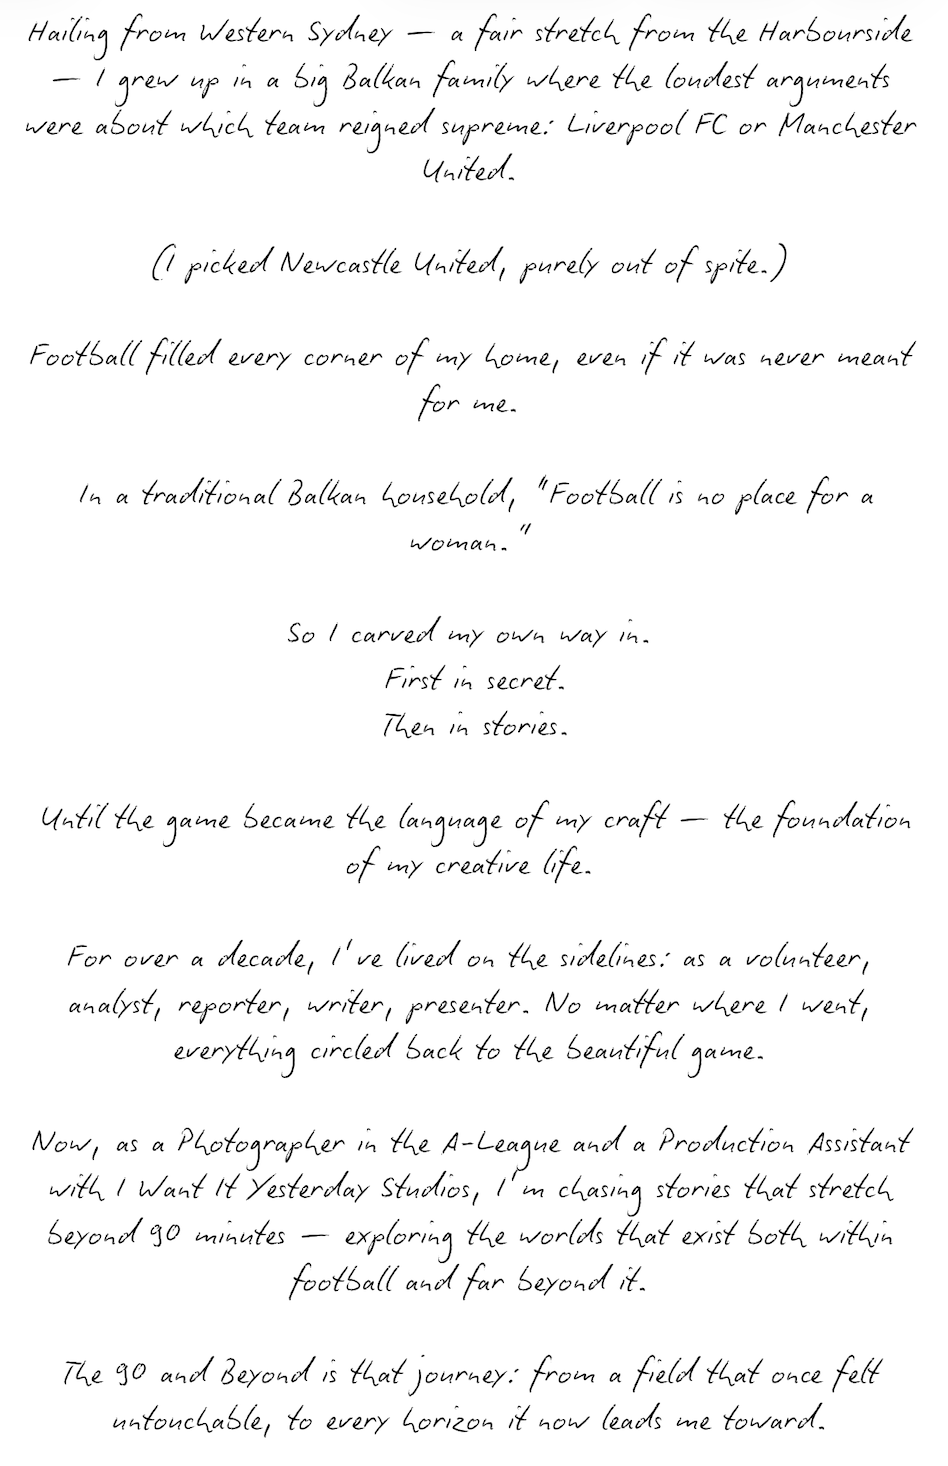 Hailing from Western Sydney — a fair stretch from the Harbourside
— I grew up in a big Balkan family where the loudest arguments
were about which team reigned supreme: Liverpool FC or Manchester
United.
(I picked Newcastle United, purely out of spite.)
Football filled every corner of my home, even if it was never meant
for me.
In a traditional Balkan household, "Football is no place for a
woman."
So I carved my own way in.
First in secret.
Then in stories.
Until the game became the language of my craft — the foundation
of my creative life.
For over a decade, I've lived on the sidelines: as a volunteer,
analyst, reporter, writer, presenter. No matter where I went,
everything circled back to the beautiful game.
Now, as a Photographer in the A-League and a Production Assistant
with I Want It Yesterday Studios, I'm chasing stories that stretch
beyond 90 minutes — exploring the worlds that exist both within
football and far beyond it.
The 90 and Beyond is that journey: from a field that once felt
untouchable, to every horizon it now leads me toward.